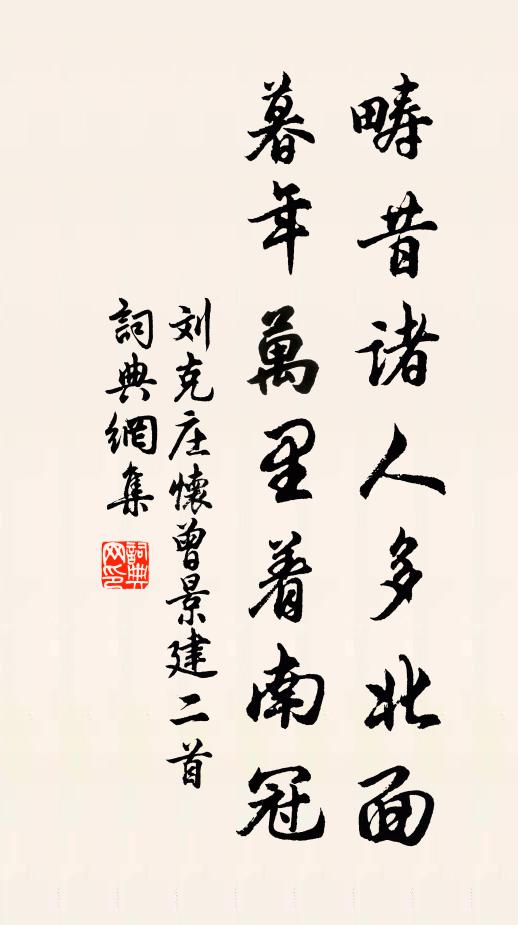 疇昔诸人多北面
暮年萬里着南冠
刘克庄懷曾景建二首
詞典網集
詞典
网印